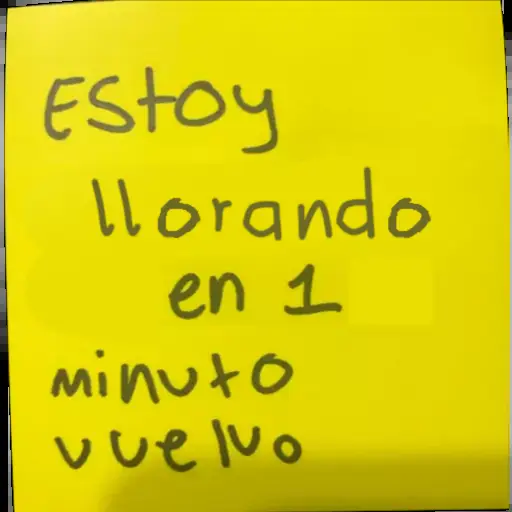 Estoy
llorando
en 1
minuto
vuelvo